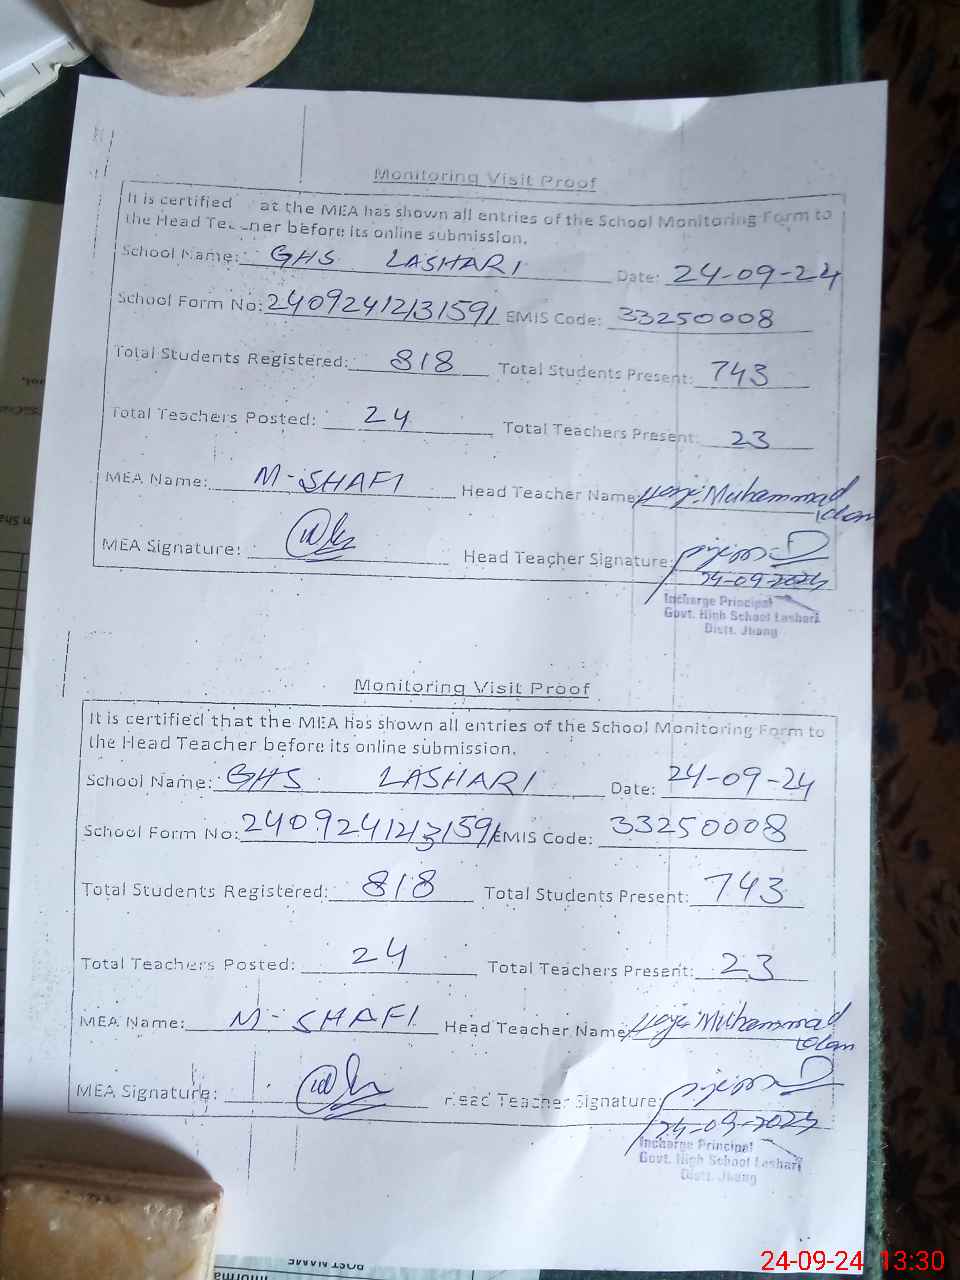 Monitoring Visit Proof
It is certified at the MEA has shown all entries of the School Monitoring Form to
the Head Teacher before its online submission.
School Name: GHS LASHARI Date: 24-09-24
School Form No: 24092412131591 EMIS Code: 33250008
Total Students Registered: 818 Total Students Present: 743
Total Teachers Posted: 24 Total Teachers Present: 23
MEA Name: M-SHAFI Head Teacher Name: Muhammad
MEA Signature: Head Teacher Signature:
24-09-2024
Incharge Principal
Govt. High School Lashari
Distt. Jhang
Monitoring Visit Proof
It is certified that the MEA has shown all entries of the School Monitoring Form to
the Head Teacher before its online submission.
School Name: GHS LASHARI Date: 24-09-24
School Form No: 24092412131591 EMIS Code: 33250008
Total Students Registered: 818 Total Students Present: 743
Total Teachers Posted: 24 Total Teachers Present: 23
MEA Name: M-SHAFI Head Teacher Name: Muhammad
MEA Signature: Head Teacher Signature:
24-09-2024
Incharge Principal
Govt. High School Lashari
Distt. Jhang
POST NAME
24-09-24 13:30